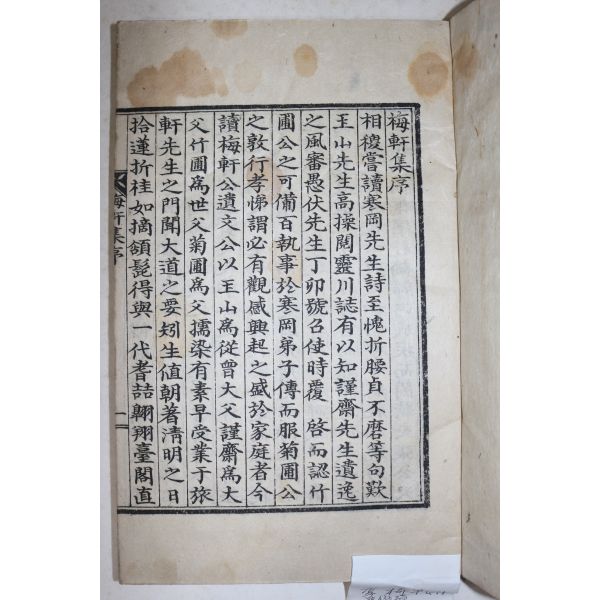 梅軒集序
相稷嘗讀寒岡先生詩至愧折腰貞不磨等句歎
王山先生高操閱靈川誌有以知謹齋先生遺逸
之風審愚伏先生丁卯號召使時覆 啓而認竹
圃公之可備百執事於寒岡弟子傳而服菊圃公
之敦行孝悌謂必有觀感興起之盛於家庭者今
讀梅軒公遺文公以王山爲從曾大父謹齋爲大
父竹圃爲世父菊圃爲父擩染有素早受業于旅
軒先生之門聞大道之要矧生値朝著淸明之日
拾蓮折桂如摘頷髭得與一代耆喆翺翔臺閣直
梅軒集序
一